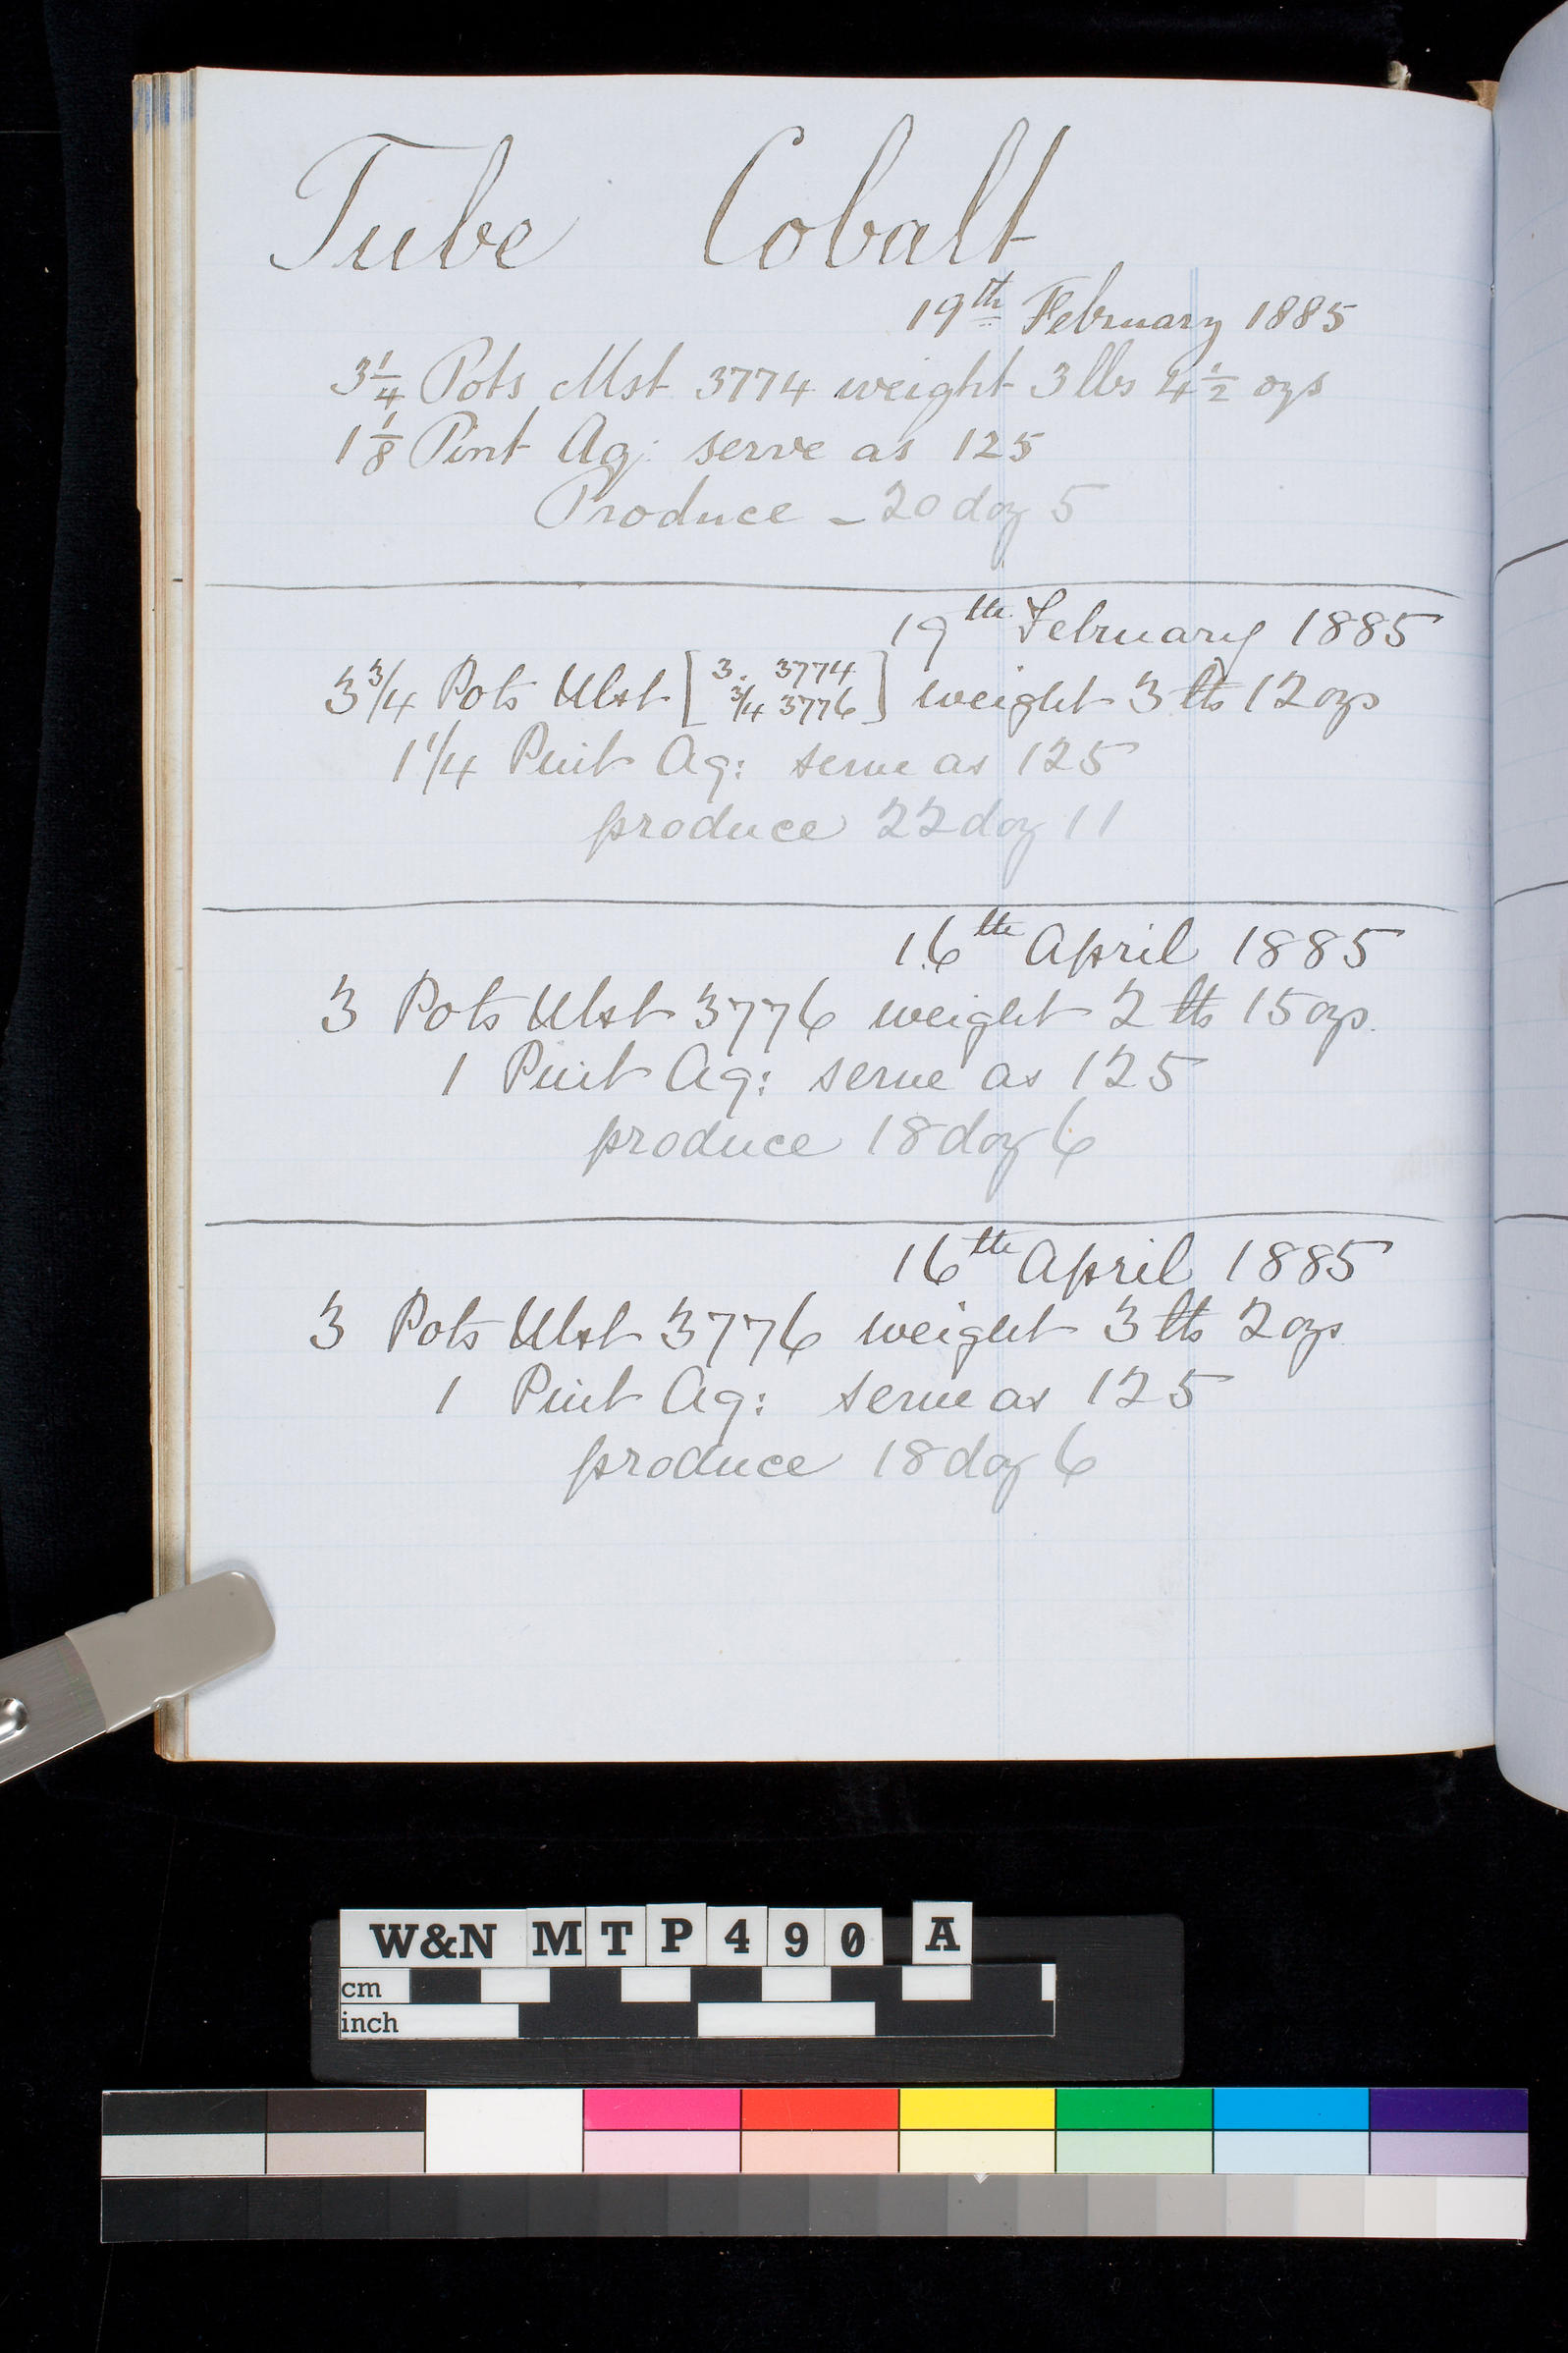 Tube Cobalt
19th February 1885
3 1/4 Pots Mst 3774 weight 3 lbs 4 1/2 ozs
1 1/8 Pint Aq: serve as 125
Produce - 20 doz 5
19th February 1885
3 3/4 Pots Mst [3. 3774
3/4 3776] weight 3 lbs 12 ozs
1 1/4 Pint Aq: serve as 125
produce 22 doz 11
16th April 1885
3 Pots Mst 3776 weight 2 lbs 15 ozs.
1 Pint Aq: serve as 125
produce 18 doz 6
16th April 1885
3 Pots Mst 3776 weight 3 lbs 2 ozs
1 Pint Aq: serve as 125
produce 18 doz 6
W&N MTP490 A
cm
inch